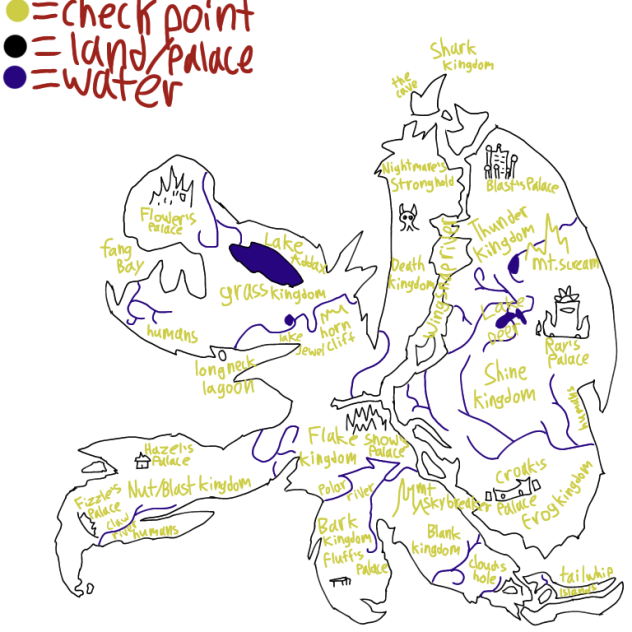 =check point
=land/palace
=water
Shark
kingdom
the
cave
Nightmare's
Stronghold
Blast's Palace
Flower's
Palace
Thunder
kingdom
fang
Bay
Lake
Addax
mt.scream
Death
kingdom
Wingsnap river
grass kingdom
Lake
Deer
humans
lake
Jewel
horn
cliff
Ray's
Palace
longneck
lagoon
Shine
kingdom
humans
Hazel's
Palace
Flake
kingdom
Snow's
Palace
Nut/Blast kingdom
Fizzle's
Palace
Claw
river
humans
Polor
river
mt
skybreaker
croak's
Palace
Frog kingdom
Bark
kingdom
Fluff's
Palace
Blank
kingdom
clouds
hole
tailwhip
Islands